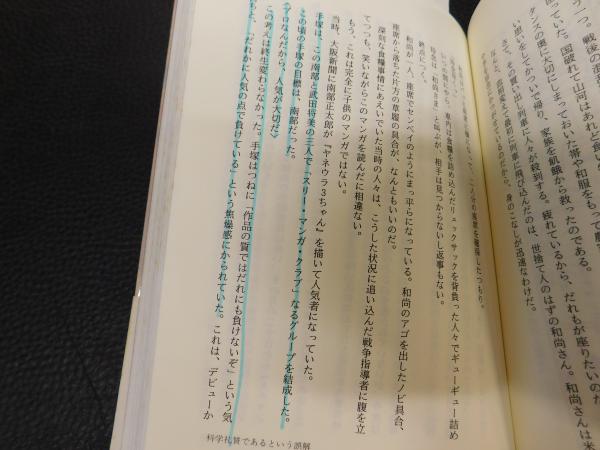 一つ。戦後の混
っていた。国破れて山河はあれど食い
タンスの奥に大切にしまっておいた帯や和服をもって
い思いをしてかついで帰り、家族を飢餓から救ったのである。
さて、その買い出し列車に人々が殺到する。疲れているから、だれもが座りたいのだ
なんと、血相変えて最初に列車に飛び込んだのは、世捨て人のはずの和尚さん。和尚さんは
がっているのだから、身のこなしが迅速なわけだ。
の座席を確保したつもり。
から、車内は食糧を詰め込んだリュックサックを背負った人々でギューギュー詰め
役員は「和尚さま」と叫ぶが、相手は見つからないし返事もない。
終点につく。
和尚が一人、座席でセンベイのようにまっ平らになっている。和尚のアゴを出したノビ具合、
座席から落ちた片方の草履の具合が、なんともいいのだ。
深刻な食糧事情にあえいでいた当時の人々は、こうした状況に追い込んだ戦争指導者に腹を立
てつつも、笑いながらこのマンガを読んだに相違ない。
もう、これは完全に子供のマンガではない。
当時、大阪新聞に南部正太郎が『ヤネウラ3ちゃん』を描いて人気者になっていた。
手塚は、この南部と武田将美の三人で「スリー・マンガ・クラブ」なるグループを結成した。
この頃の手塚の目標は、南部だった。
〈プロなんだから、人気が大切だ〉
この考えは終生変わらなかった。手塚はつねに、「作品の質ではだれにも負けないぞ」という気
もちと、「だれかに人気の点で負けている」という焦燥感にかられていた。これは、デビューか
科学礼賛であるという誤解